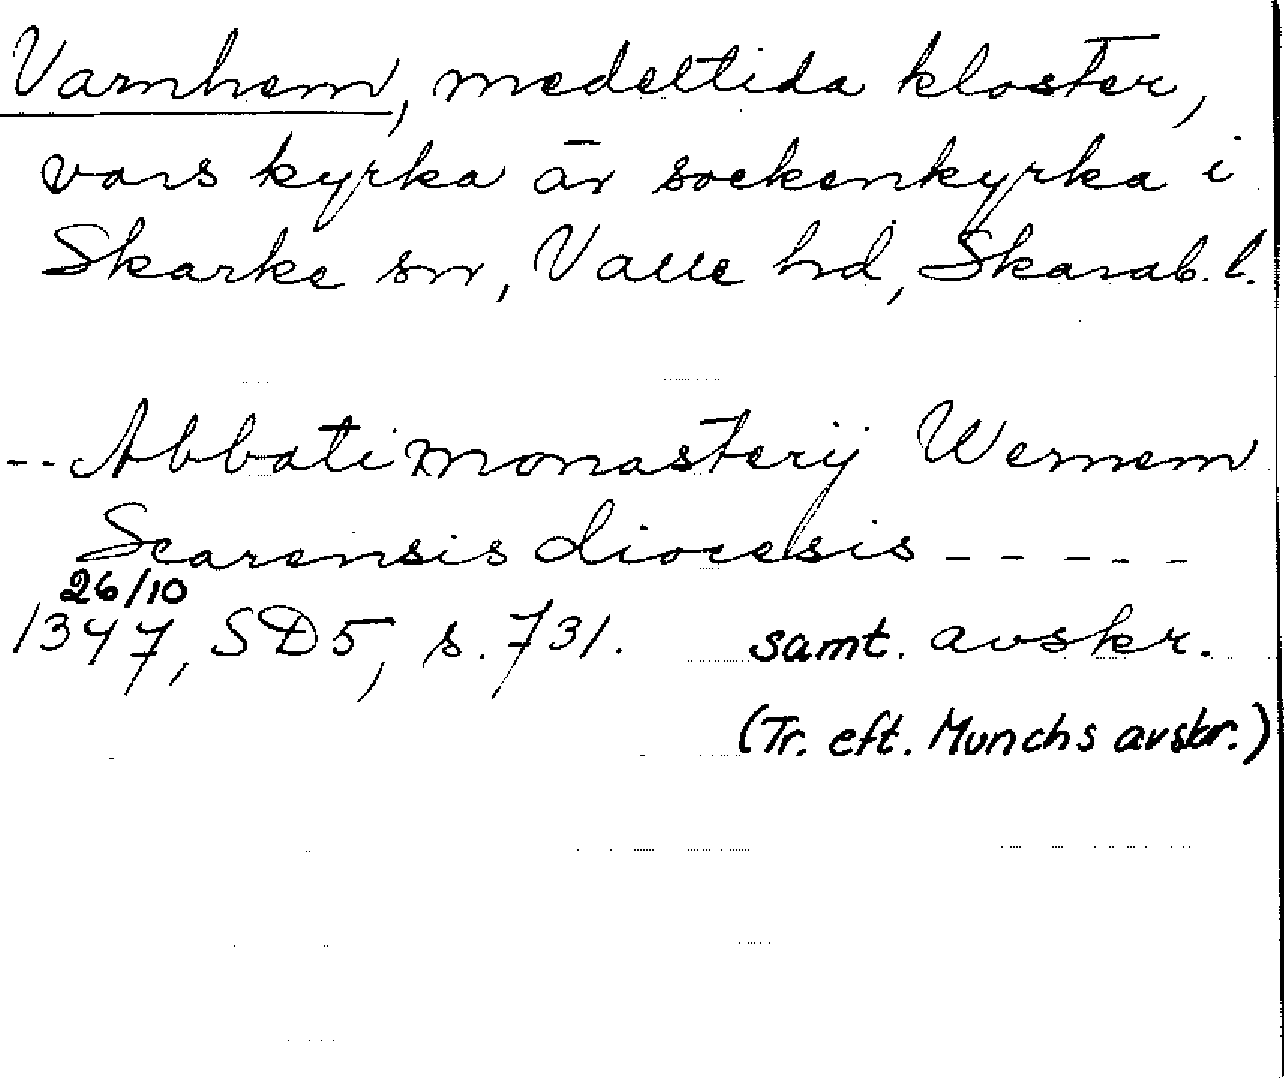 Varnhem, medeltida kloster,
vars kyrka är sockenkyrka i
Skarke sn, Valle hd, Skarab. l.
-- Abbati monasterij Wernem
Scarensis diocesis - - - - -
26/10
1347, SD5, s. 731. samt. avskr.
(Tr. eft. Munchs avskr.)